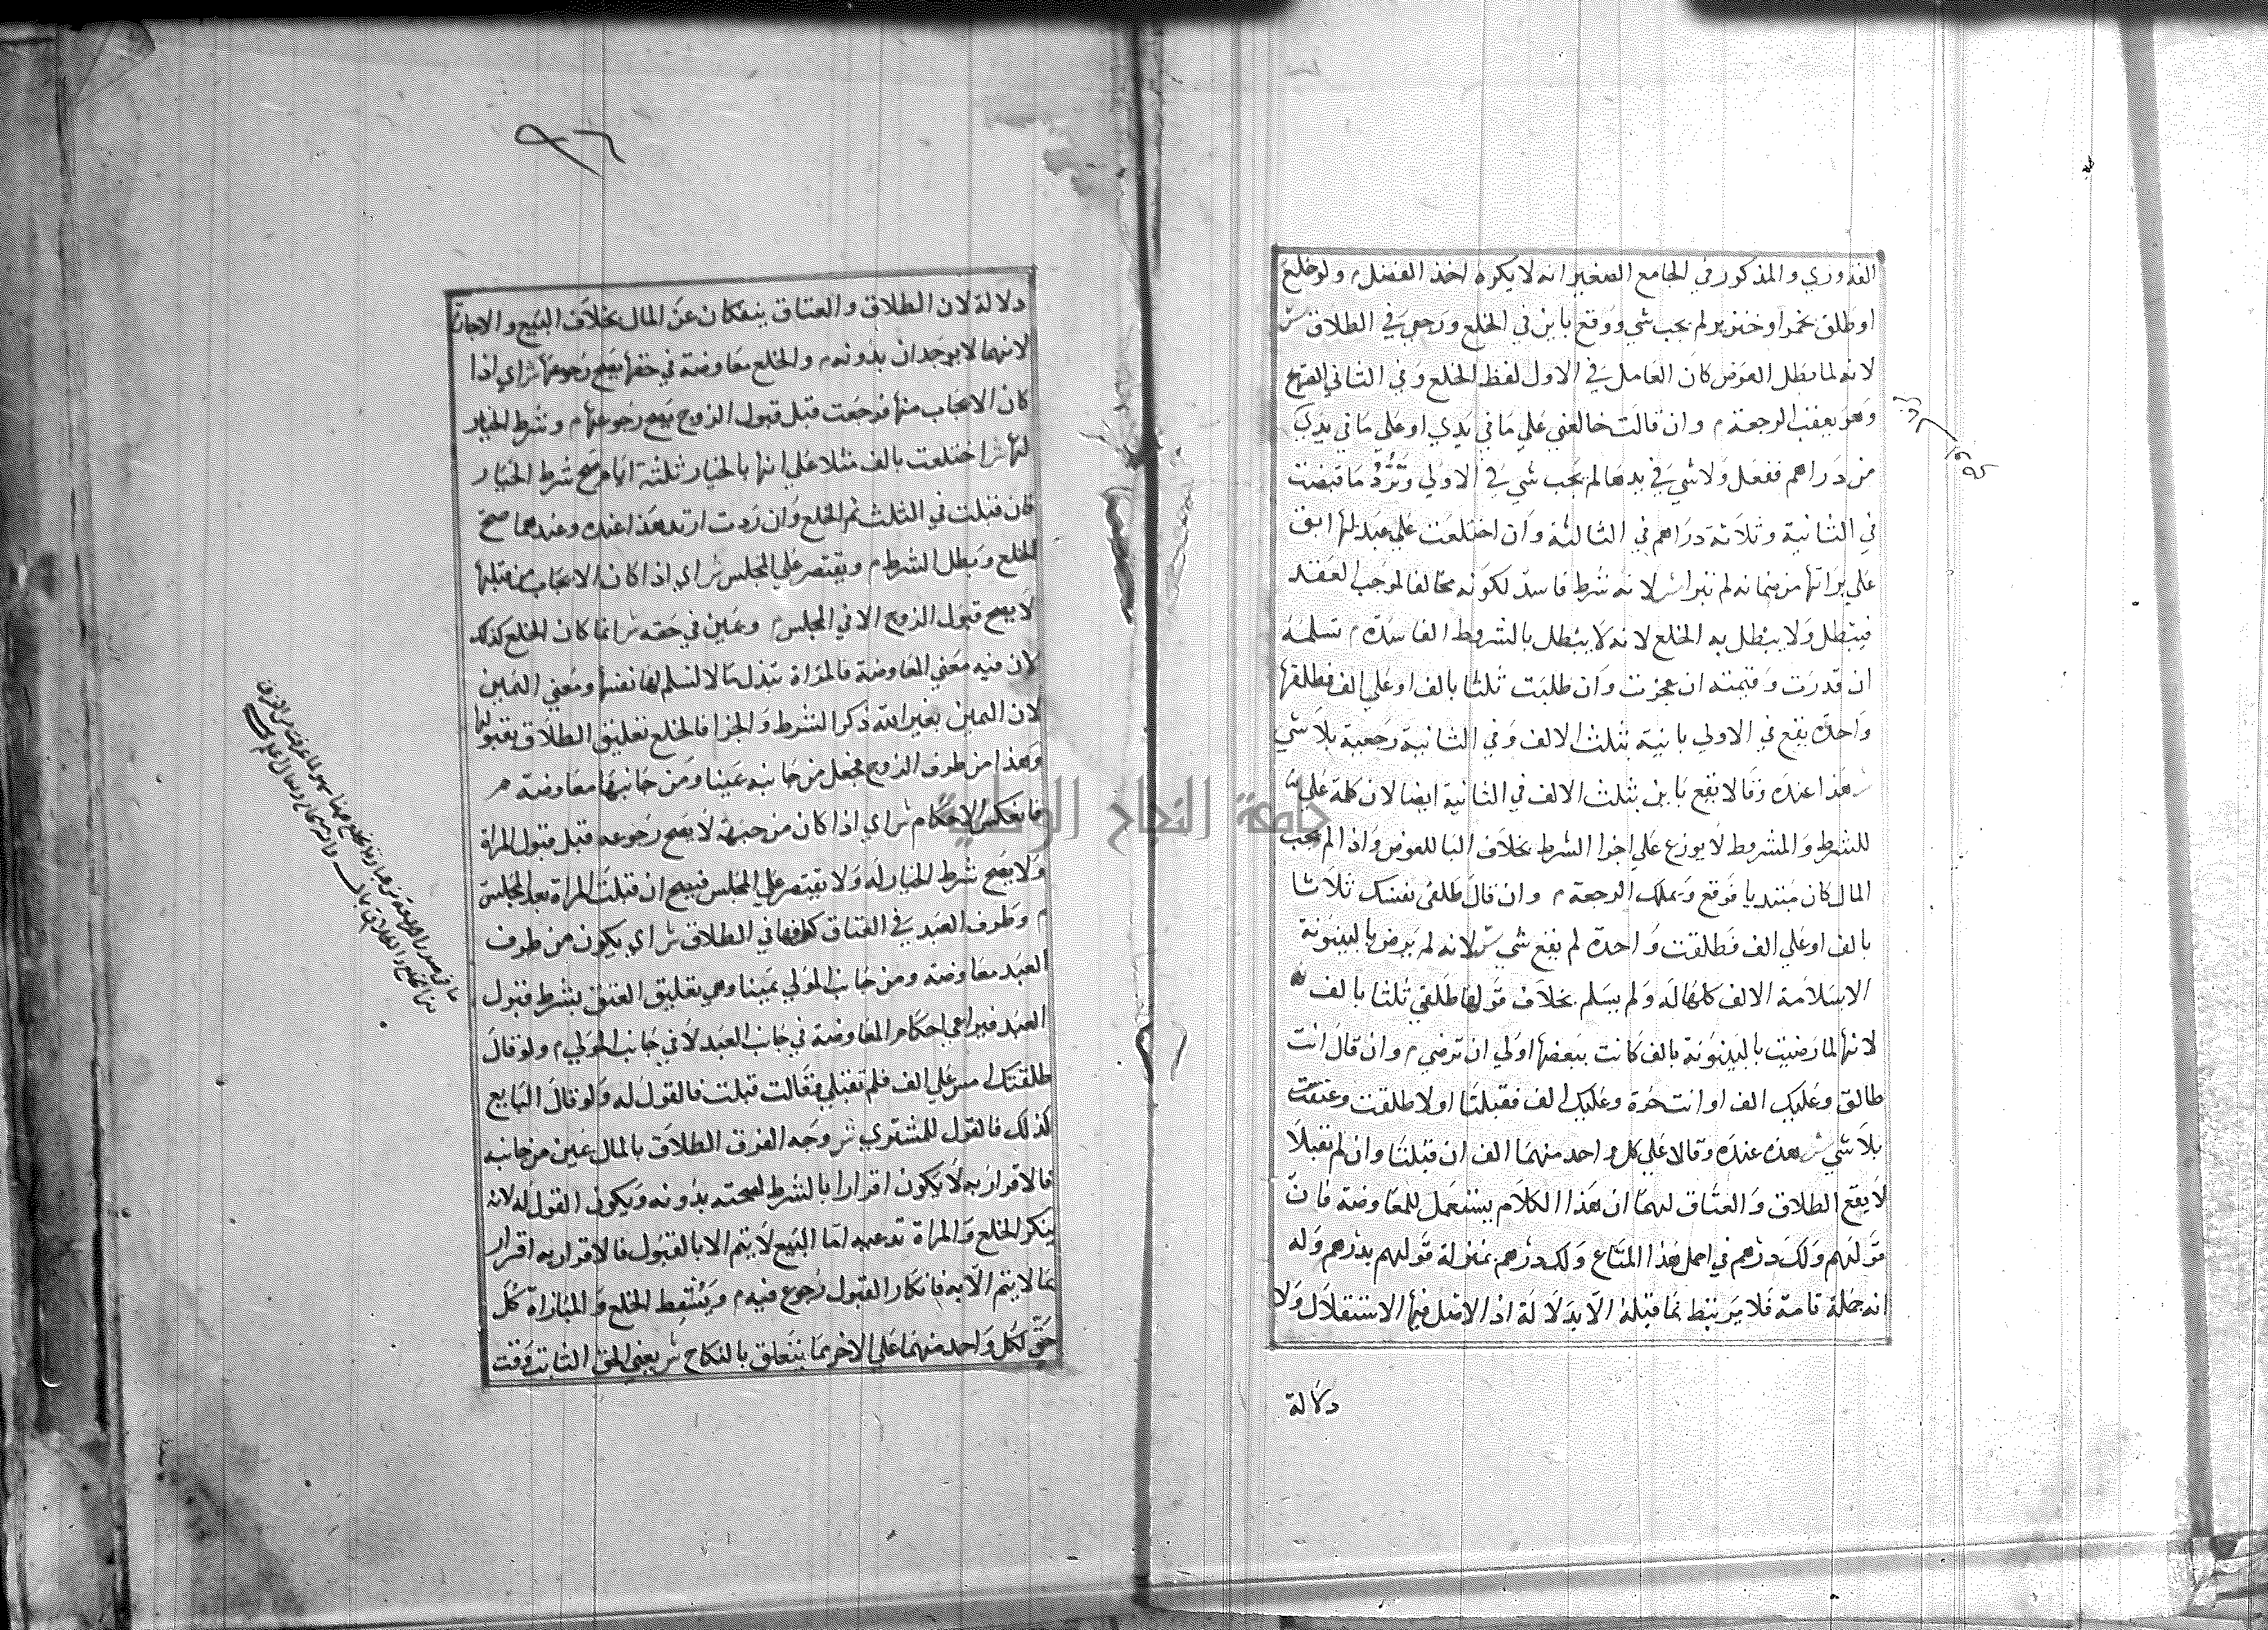 القدوري والمذكور في الجامع الصغير انه لا يكره اخذ الفضل م ولو خلع
او طلق بخمر او خنزير لم يجب شي ووقع باين في الخلع ورجعي في الطلاق ش
لانه لما بطل العوض كان العامل في الاول لفظ الخلع وفي الثاني الصريح
وهو يعقب الرجعة م وان قالت خالعني علي ما في يدي او علي ما في يدي
من دراهم ففعل ولا شي في يدها لم يجب شي في الاولي وترد ما قبضت
في الثانية وثلاثة دراهم في الثالثة وان اختلعت علي عبد لها ابق
علي براتها من ضمانه لم تبرا ش لانه شرط فاسد لكونه مخالفا لموجب العقد
فيبطل ولا يبطل به الخلع لانه لا يبطل بالشروط الفاسدة م تسلمه
ان قدرت وقيمته ان عجزت وان طلبت ثلثا بالف او علي الف فطلقها
واحدة يقع في الاولي باينة بثلث الالف وفي الثانية رجعية بلا شي
ش هذا عنده وقالا يقع باين بثلث الالف في الثانية ايضا لان كلمة علي
للشرط والمشروط لا يوزع علي اجزا الشرط بخلاف البا للعوض واذا لم يجب
المال كان مبتديا فوقع ويملك الرجعة م وان قال طلقي نفسك ثلاثا
بالف او علي الف فطلقت واحدة لم يقع شي ش لانه لم يرض بالبينونة
الا بسلامة الالف كلها له ولم يسلم بخلاف قولها طلقني ثلثا بالف
لانها لما رضيت بالبينونة بالف كانت ببعضها اولي ان ترضي م وان قال انت
طالق وعليك الف او انت حرة وعليك الف فقبلتا اولا طلقت وعتقت
بلا شي ش هذه عنده وقالا علي كل واحد منهما الف ان قبلتا وان لم تقبلا
لا يقع الطلاق والعتاق لهما ان هذا الكلام يستعمل للمعاوضة فان
قولهم ولك درهم في احمل هذا المتاع ولك درهم بمنزلة قولهم بدرهم وله
انه جملة تامة فلا يرتبط بما قبله الا بدلالة اذ الاصل فيها الاستقلال ولا
دلالة
٩٦
دلالة لان الطلاق والعتاق ينفكان عن المال بخلاف البيع والاجارة
لانهما لا يوجدان بدونه م والخلع معاوضة في حقها يصح رجوعها ش اي اذا
كان الايجاب منها فرجعت قبل قبول الزوج يصح رجوعها م وشرط الخيار
لها ش اختلعت بالف مثلا علي انها بالخيار ثلثة ايام صح شرط الخيار
فان قبلت في الثلث تم الخلع وان ردت ارتد هذا عنده وعندهما صح
الخلع وبطل الشرط م ويقتصر علي المجلس ش اي اذا كان الايجاب من قبلها
لا يصح قبول الزوج الا في المجلس م ويمين في حقه ش انما كان الخلع كذلك
لان فيه معني المعاوضة فالمراة تبذل مالا لتسلم لها نفسها ومعني اليمين
لان اليمين بغير الله ذكر الشرط والجزا فالخلع تعليق الطلاق بقبولها
وهذا من طرف الزوج فجعل من جانبه يمينا ومن جانبها معاوضة م
فانعكس الاحكام ش اي اذا كان من جهته لا يصح رجوعه قبل قبول المراة
ولا يصح شرط الخيار له ولا يقتصر علي المجلس فيصح ان قبلت المراة بعد المجلس
م وطرف العبد في العتاق كطرفها في الطلاق ش اي يكون من طرف
العبد معاوضة ومن جانب المولي يمينا وهي تعليق العتق بشرط قبول
العبد فيراعي احكام المعاوضة في جانب العبد لا في جانب المولي م ولو قال
طلقتك امس علي الف فلم تقبلي فقالت قبلت فالقول له ولو قال البايع
كذلك فالقول للمشتري ش وجه الفرق الطلاق بالمال يمين من جانبه
فالاقرار به لا يكون اقرارا بالشرط لصحته بدونه ويكون القول له لانه
ينكر الخلع والمراة تدعيه اما البيع لا يتم الا بالقبول فالاقرار به اقرار
بما لا يتم الا به فانكار القبول رجوع فيه م ويسقط الخلع والمباراة كل
حق لكل واحد منهما علي الاخر مما يتعلق بالنكاح ش يعني الحق الثابت وقت
جامعة النجاح الوطنية